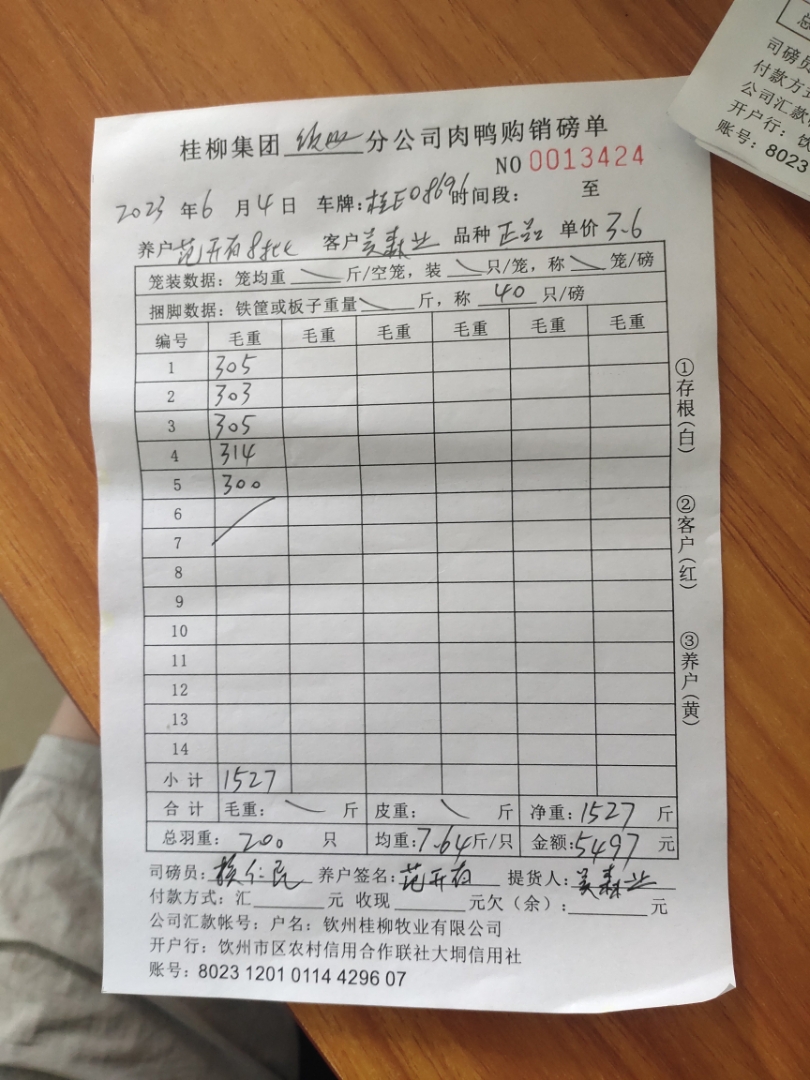 桂柳集团 钦州 分公司肉鸭购销磅单
NO 0013424
2023 年 6 月 4 日 车牌:桂E08696 时间段: 至
养户 范开有8批 客户 吴森业 品种 正品 单价 3.6
笼装数据:笼均重 斤/空笼,装 只/笼,称 笼/磅
捆脚数据:铁筐或板子重量 斤,称 40 只/磅
编号 毛重 毛重 毛重 毛重 毛重 毛重
1 305
2 303
3 305
4 314
5 300
6
7
8
9
10
11
12
13
14
小计 1527
合计 毛重: 斤 皮重: 斤 净重:1527 斤
总羽重: 200 只 均重:7.64斤/只 金额:5497 元
司磅员: 养户签名:范开有 提货人:吴森业
付款方式:汇 元 收现 元欠(余): 元
公司汇款帐号:户名:钦州桂柳牧业有限公司
开户行:饮州市区农村信用合作联社大垌信用社
账号:8023 1201 0114 4296 07
①存根(白)
②客户(红)
③养户(黄)
司磅员
付款方式
公司汇款
开户行:饮
账号:8023